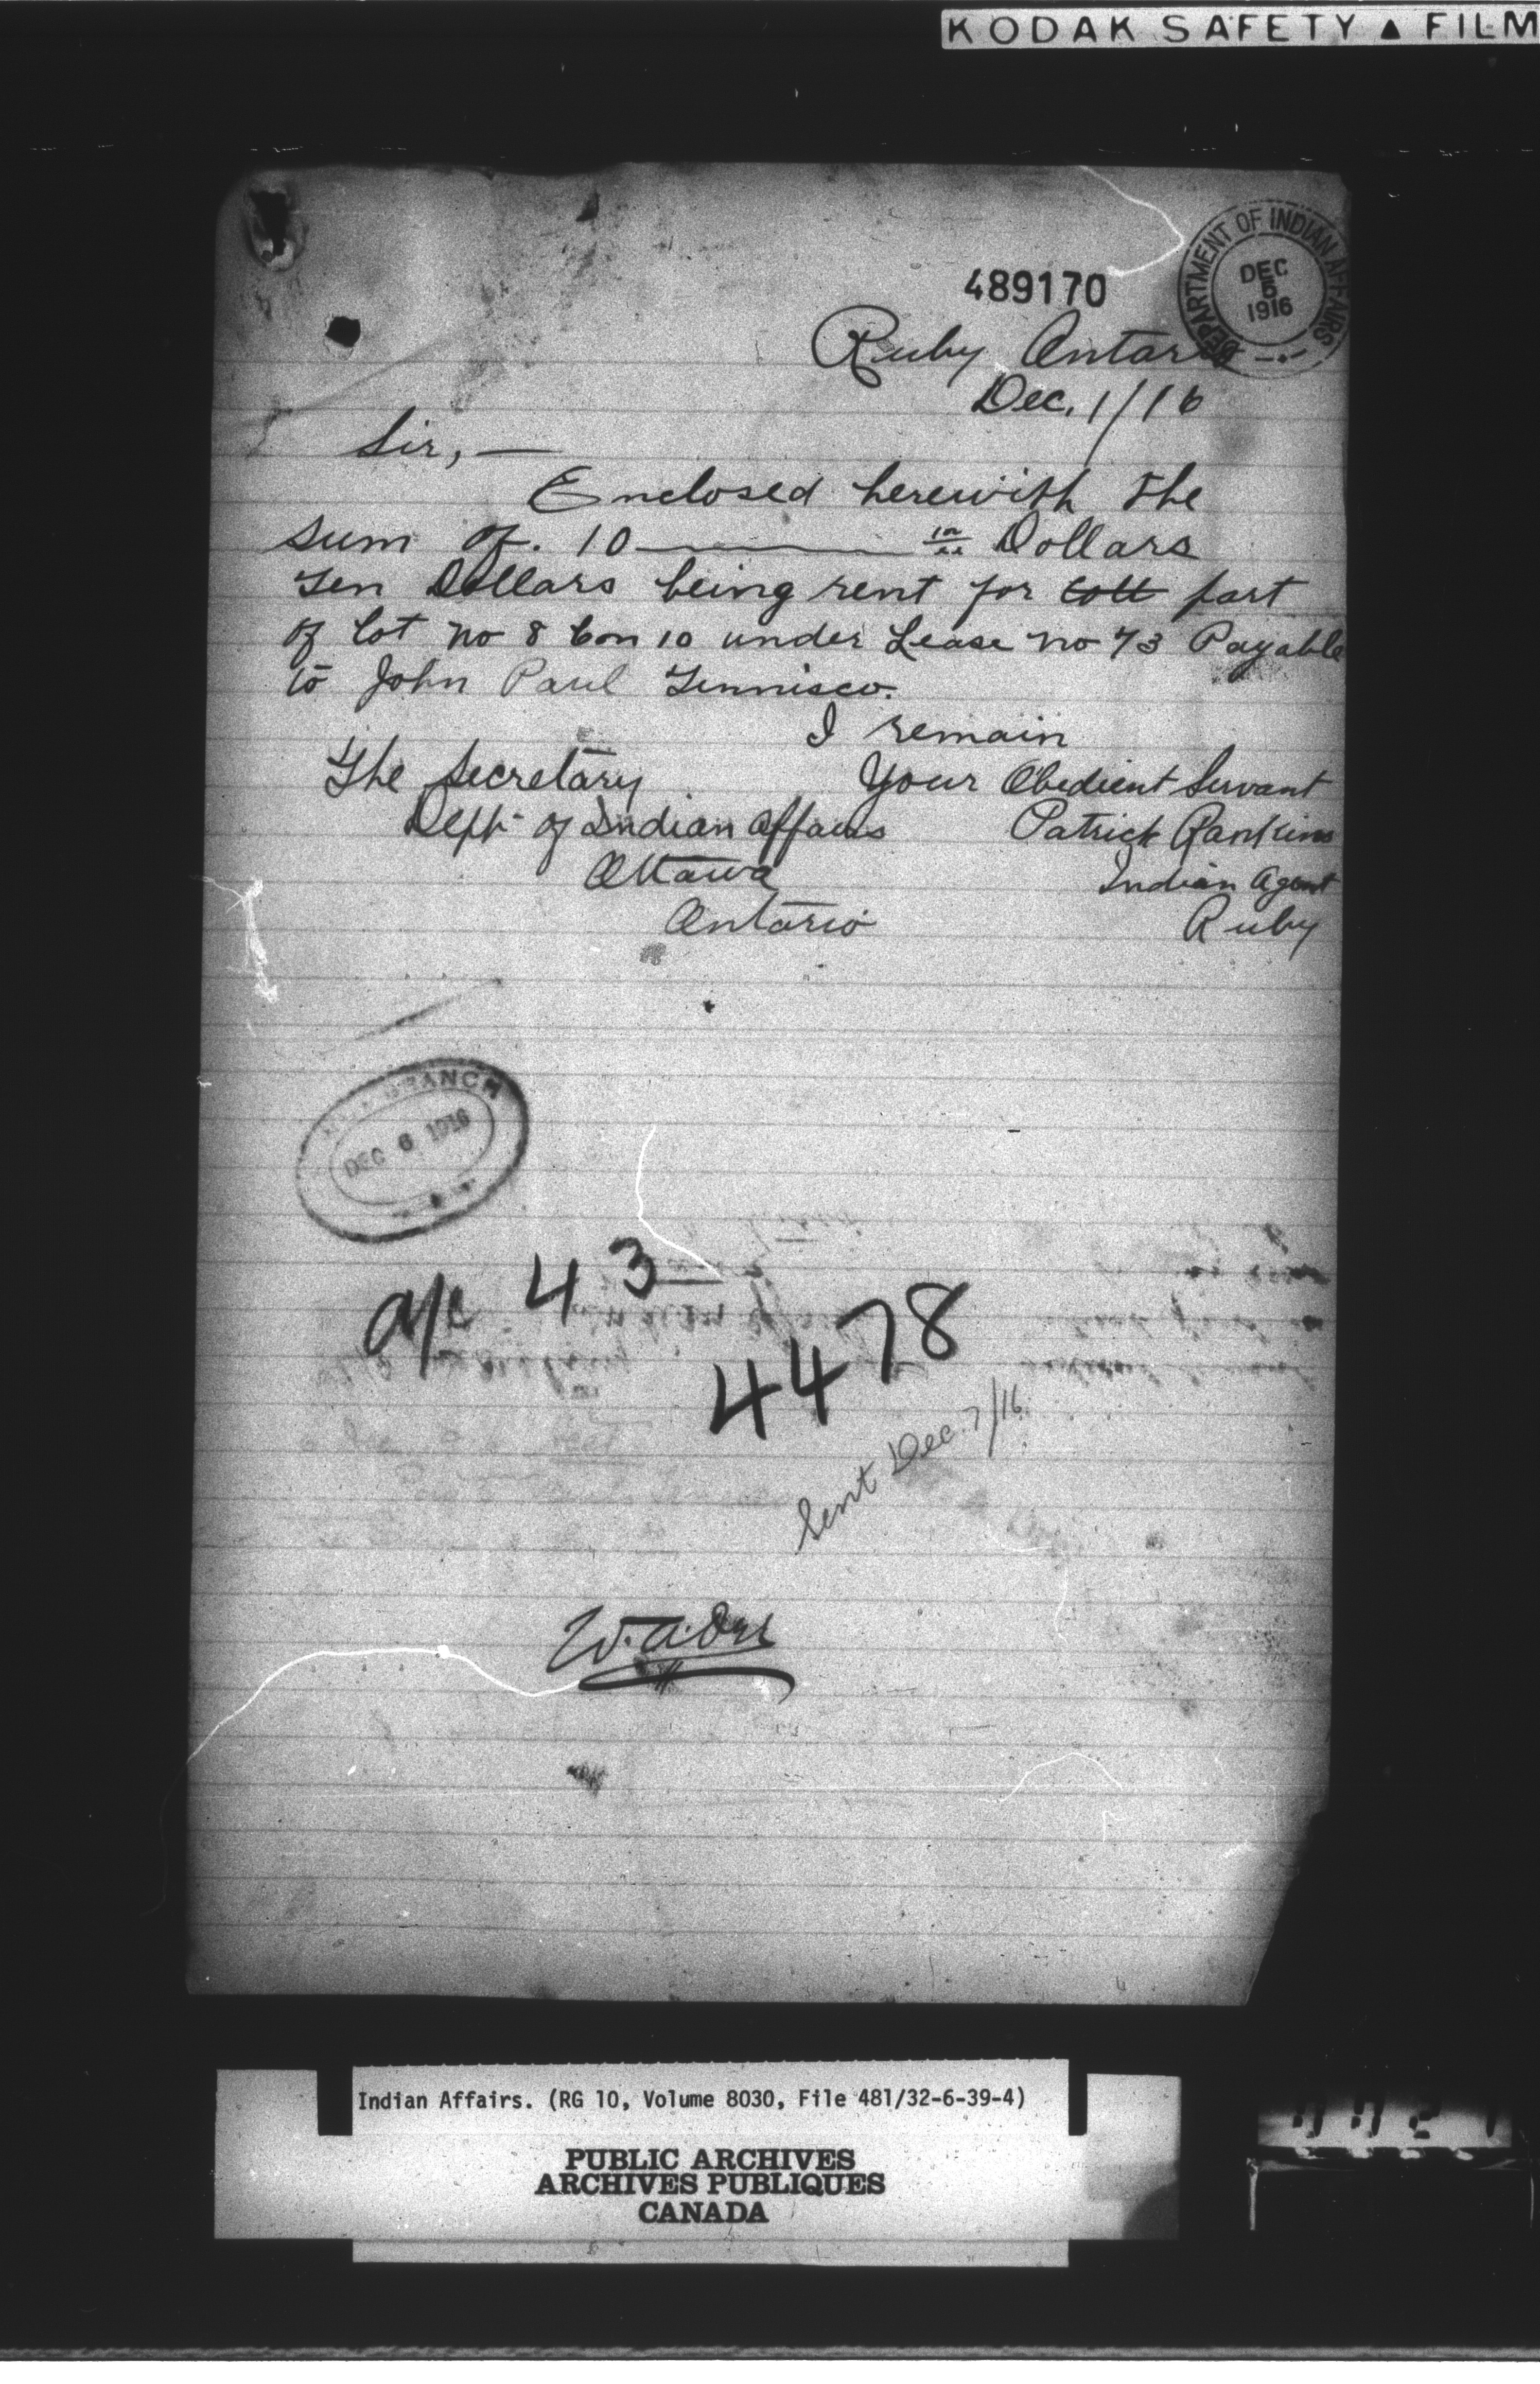 KODAK SAFETY ▲ FILM
DEPARTMENT OF INDIAN AFFAIRS
DEC
5
1916
489170
Ruby Ontario
Dec. 1/16
Sir, —
Enclosed herewith the
sum of. 10 Dollars
Ten Dollars being rent for part
of Lot no 8 Con 10 under Lease no 73 Payable
to John Paul Tennisco.
I remain
The Secretary Your Obedient Servant
Dept of Indian Affairs Patrick Rankins
Ottawa Indian Agent
Ontario Ruby
BRANCH
DEC 6 1916
a/c 43
4478
Sent Dec. 7/16
W.A. Orr
Indian Affairs. (RG 10, Volume 8030, File 481/32-6-39-4)
PUBLIC ARCHIVES
ARCHIVES PUBLIQUES
CANADA